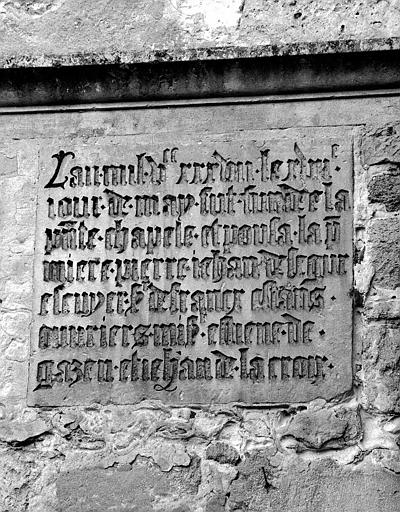 Lan mil vᶜ xxx dui · le xviiiᵉ
iour · de · may · fut · fundee la
pnte · chapele · et pousa · la p
miere · pierre · iehan · de segur
escuyer
ouuriers · estiene · de ·
gazen · et iehan · de · la croix ·